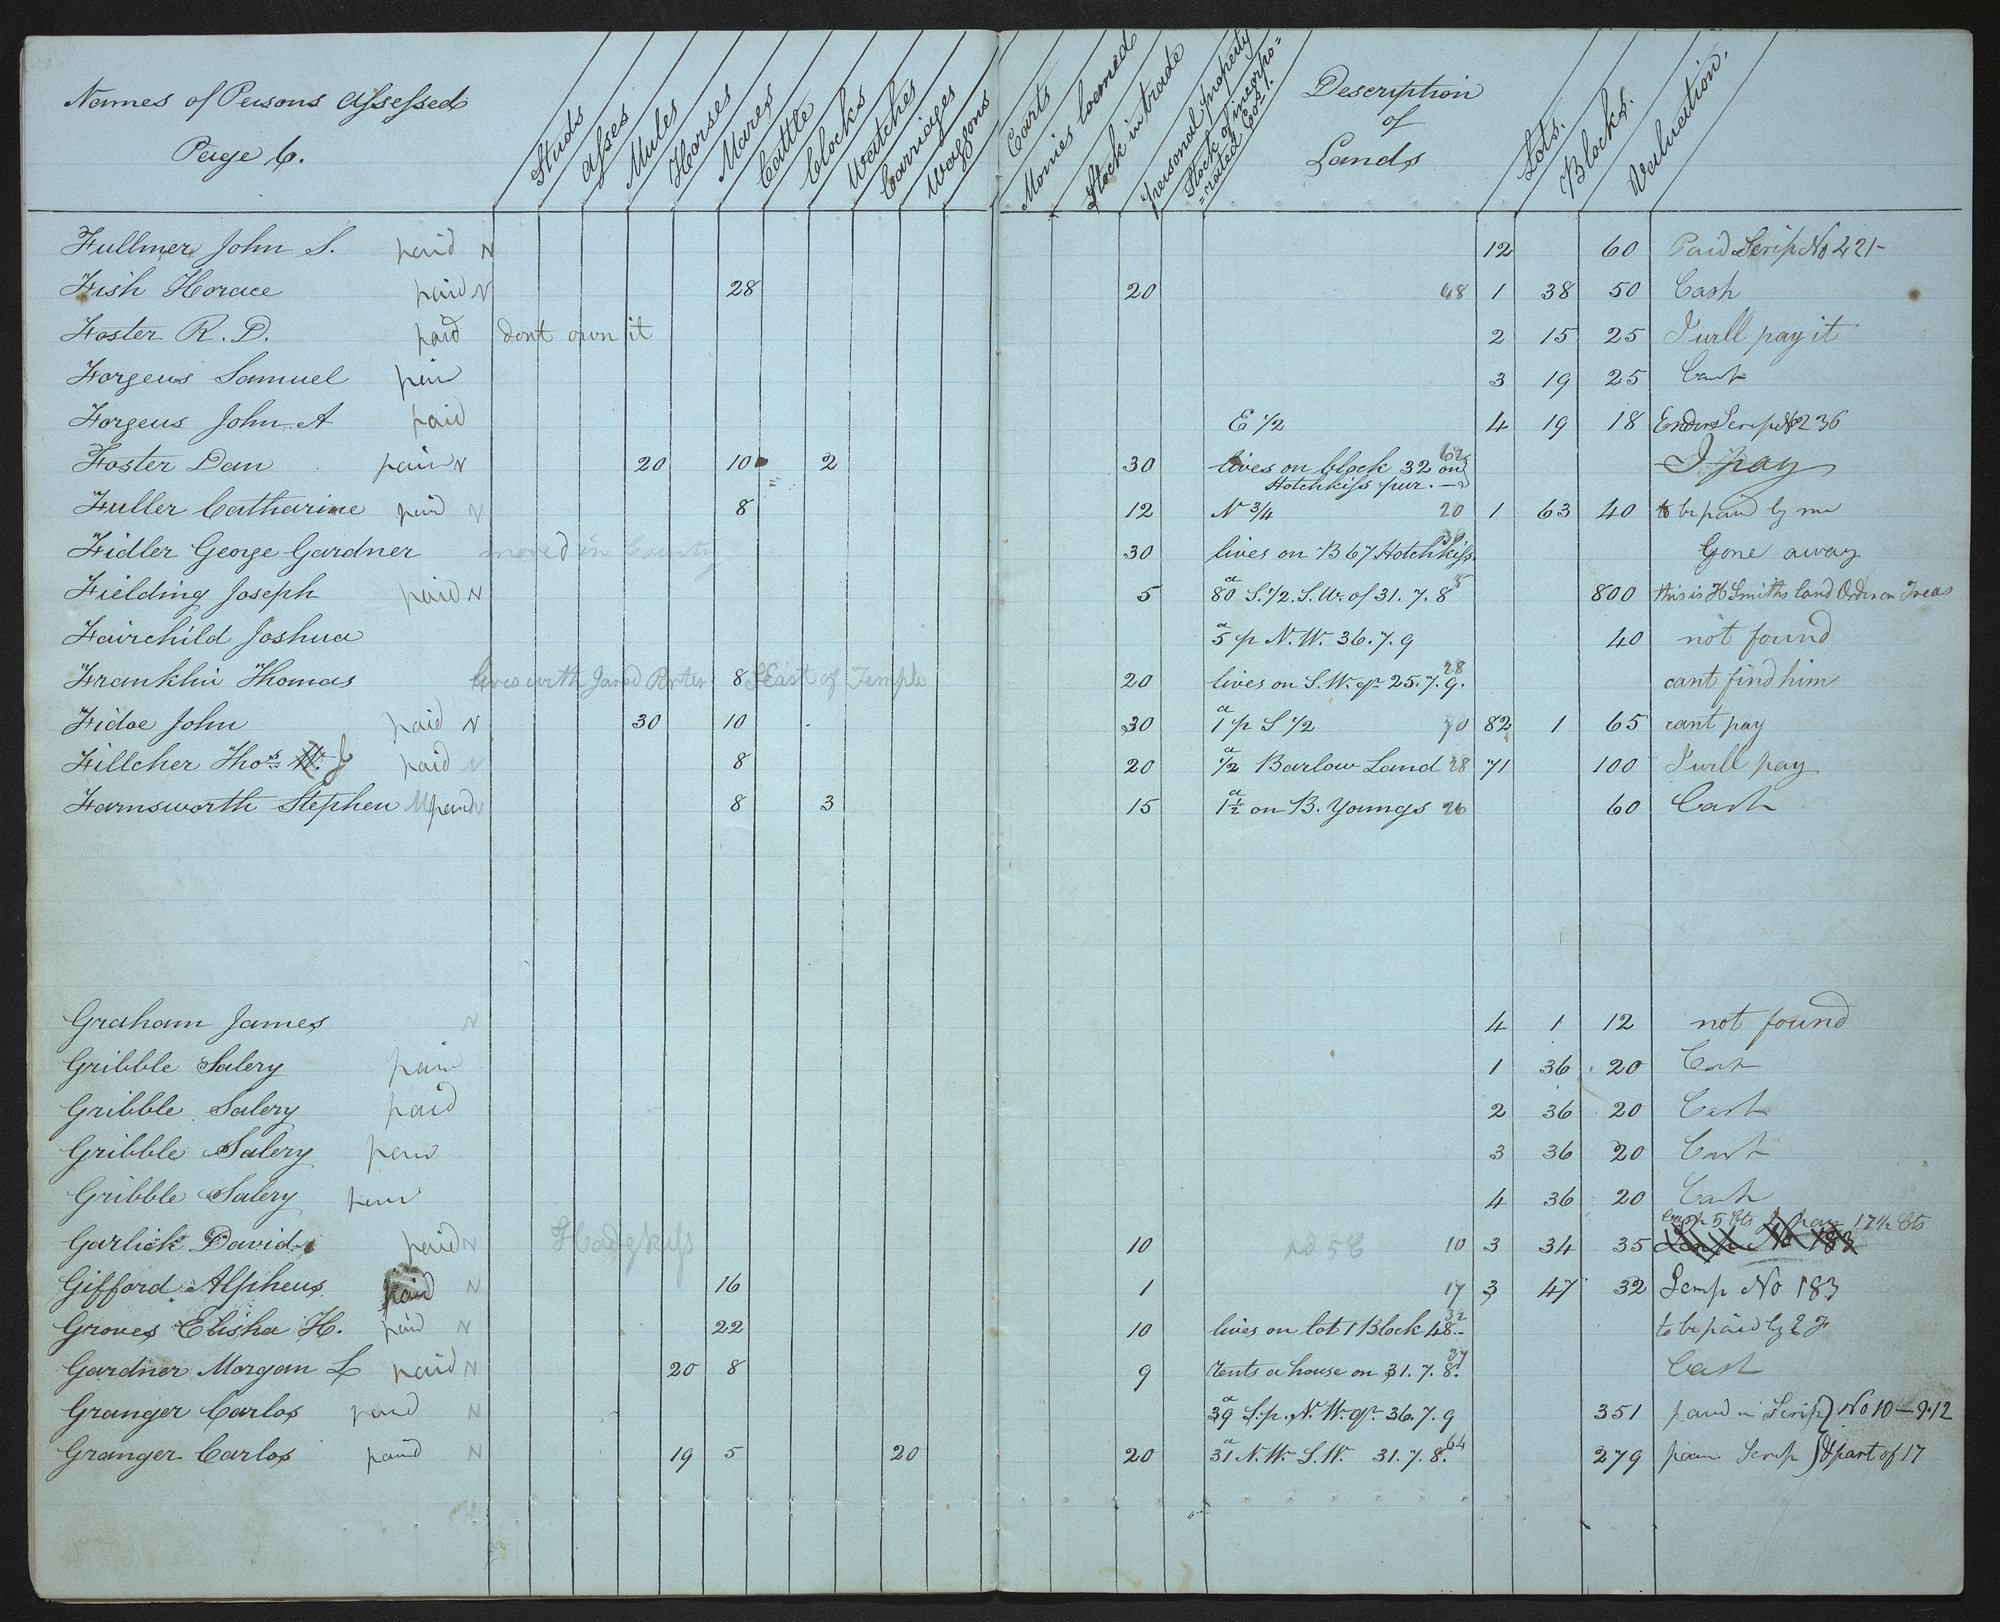 Names of Persons Assessed
Page 6.
Studs
Asses
Mules
Horses
Mares
Cattle
Clocks
Watches
Carriages
Waggons
Carts
Monies loaned
Stock in trade
personal property
Stock of incorpo=
=rated Co's.
Description
of
Lands
Lots.
Blocks.
Valuation.
Fullmer John S. paid N 12 60 Paid Scrip No 221-
Fish Horace paid N 28 20 48 1 38 50 Cash
Foster R. D. paid dont own it 2 15 25 I will pay it
Forgeus Samuel paid 3 19 25 Cash
Forgeus John A paid E 1/2 4 19 18 Scrip No 236
Foster Dan paid N 20 10 2 30 lives on block 32 on 62
Hotchkiss pur. I pay
Fuller Catharine paid N 8 12 N 3/4 20 1 63 40 to be paid by me
Fidler George Gardner moved in County 30 lives on B 67 Hotchkiss 30 Gone away
Fielding Joseph paid N 5 80 a S. 1/2. S. W. of 31. 7. 8 5 800 this is H Smiths land Order on Treas
Fairchild Joshua 5 a p N. W. 36. 7. 9 40 not found
Franklin Thomas lives with Jared Porter 8 S East of Temple 20 lives on S. W. qr 25. 7. 9. 28 cant find him
Fidoe John paid N 30 10 30 1 a p S 1/2 70 82 1 65 cant pay
Fillcher Thos. W. J paid N 8 20 1/2 a Barlow Land 28 71 100 I will pay
Farnsworth Stephen M paid N 8 3 15 1 1/2 a on B. Youngs 26 60 Cash
Graham James N 4 1 12 not found
Gribble Salery paid 1 36 20 Cash
Gribble Salery paid 2 36 20 Cash
Gribble Salery paid 3 36 20 Cash
Gribble Salery paid 4 36 20 Cash
Garlick David paid N Hodgkiss 10 pd 5 C 10 3 34 35 Cash 5 Cts I pay 17 1/2 Cts
Scrip No 183
Gifford Alpheus paid N 16 1 17 3 47 32 Scrip No 183
Groves Elisha H. paid N 22 10 lives on lot 1 Block 48 32 to be paid by
Gardner Morgan L paid N 20 8 9 rents a house on 31. 7. 8. 37 Cash
Granger Carlos paid N 39 a S. p. N. W. qr. 36. 7. 9 351 paid in Scrip } No 10 - 9. 12
Granger Carlos paid N 19 5 20 20 31 a N. W. S. W. 31. 7. 8. 64 279 paid Scrip } & part of 17